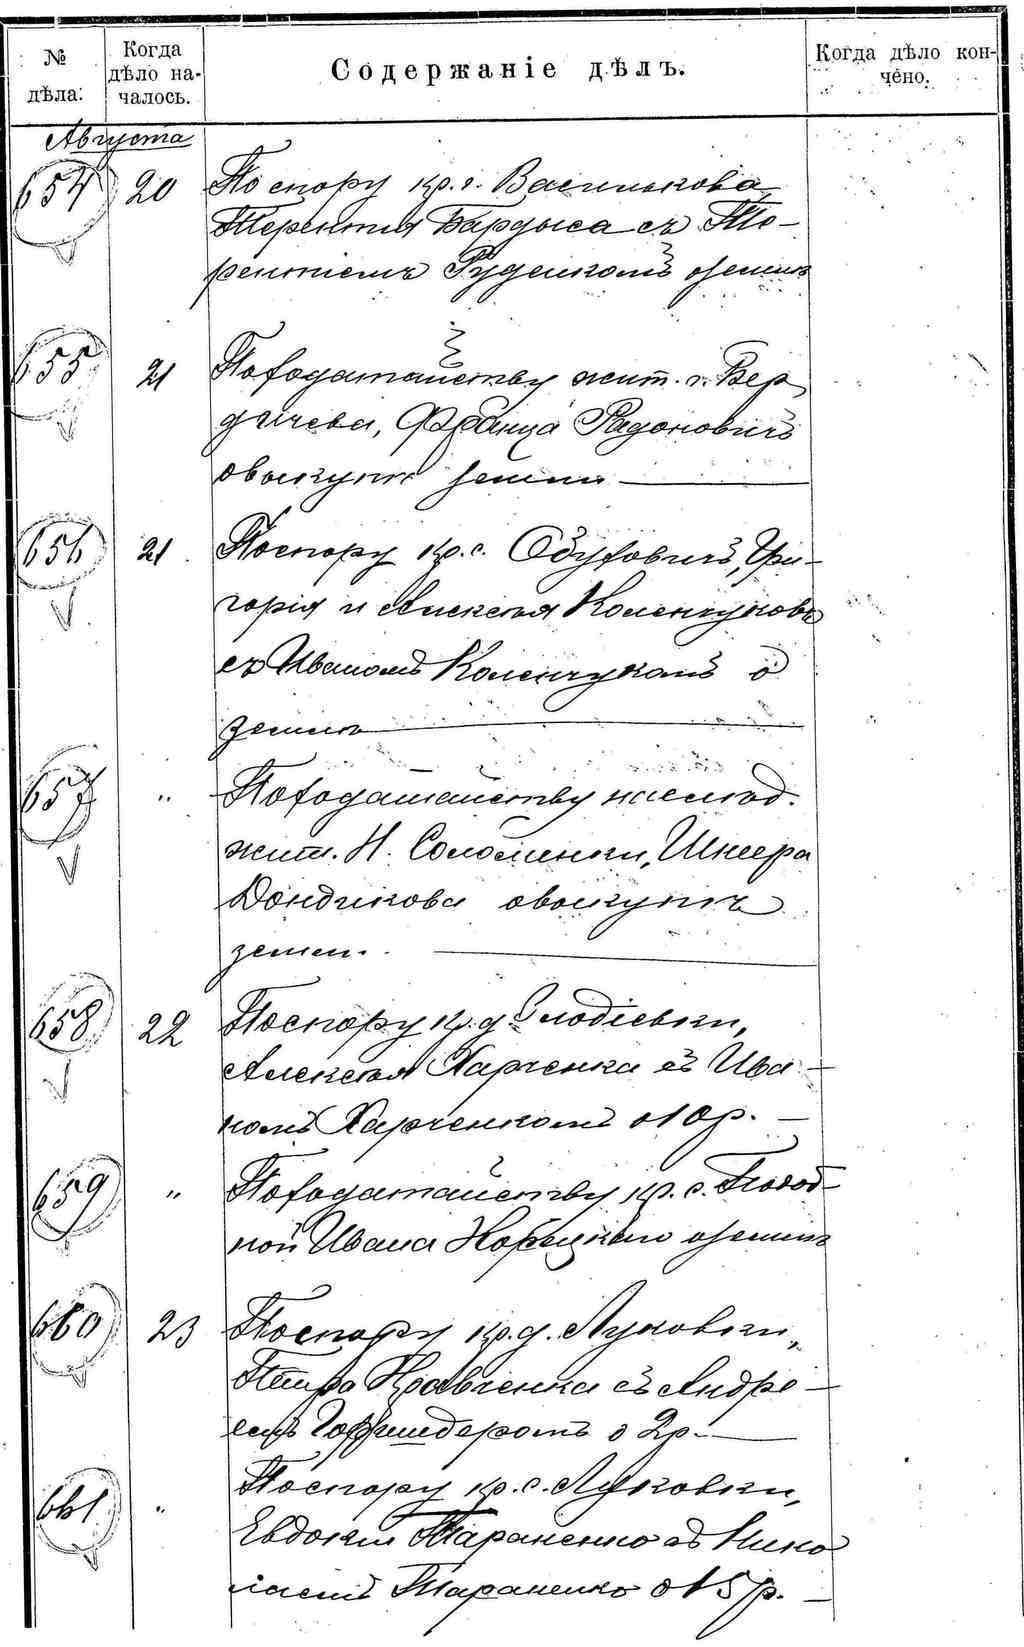 № дѣла.
Когда дѣло началось.
Содержаніе дѣлъ.
Когда дѣло кончено.
Августа
654 20 По спору кр. г. Василькова,
Терентія Бардыса съ Те-
рентіемъ Руденкомъ о землѣ
655 21 По ходатайству жит. г. Бер
дичева, Франца Радоновичъ
о выкупѣ земли
656 21 По спору кр. с. Обуховичъ, Гри-
горія и Алексѣя Коленчуковъ
съ Иваномъ Коленчукомъ о
землѣ
657 " По ходатайству
жит. Н. Соломенки, Шнеера
Дондикова о выкупѣ
земли.
658 22 По спору кр. д. Злодіевки,
Алексѣя Харченка съ Ива-
номъ Харченкомъ о 10 р.
659 " По ходатайству кр. с.
Ивана о землѣ
660 23 По спору кр. д. Луковки,
Петра Кравченка съ Андре-
емъ о 2 р.
661 " По спору кр. с. Луковки,
Евдокіи Тараненко съ Нико
лаемъ Тараненко о 15 р.